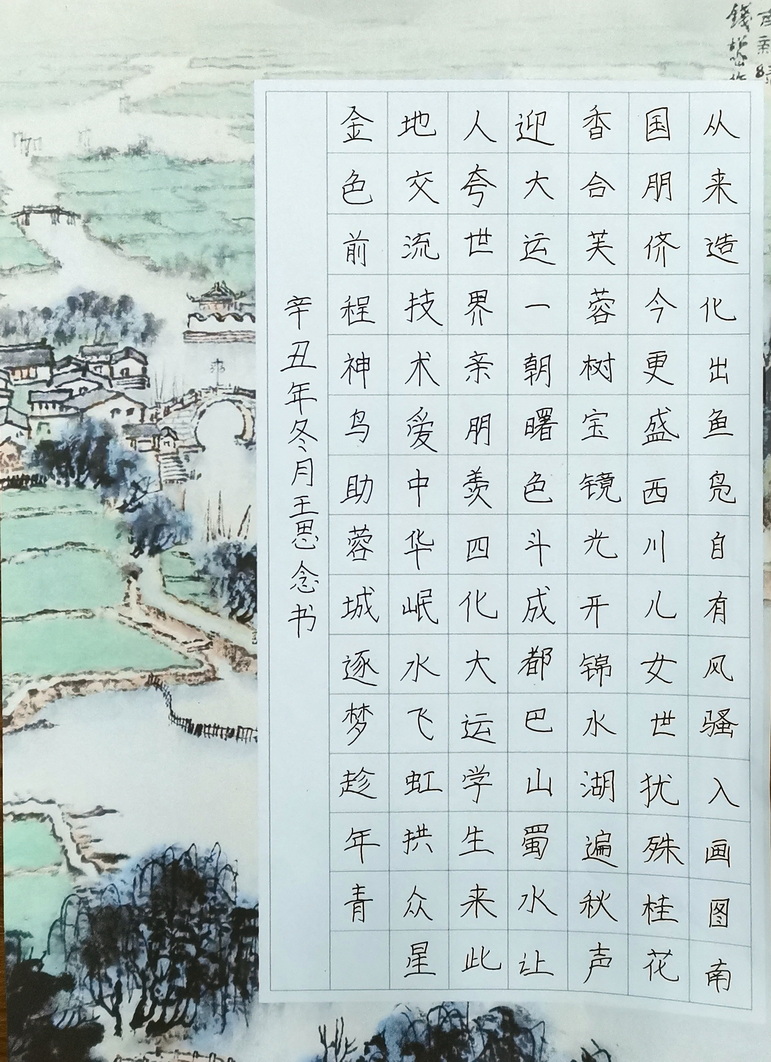 从来造化出鱼凫自有风骚入画图南
国朋侪今更盛西川儿女世犹殊桂花
香合芙蓉树宝镜光开锦水湖遍秋声
迎大运一朝曙色斗成都巴山蜀水让
人夸世界亲朋羡四化大运学生来此
地交流技术爱中华岷水飞虹拱众星
金色前程神鸟助蓉城逐梦趁年青
辛丑年冬月王思念书